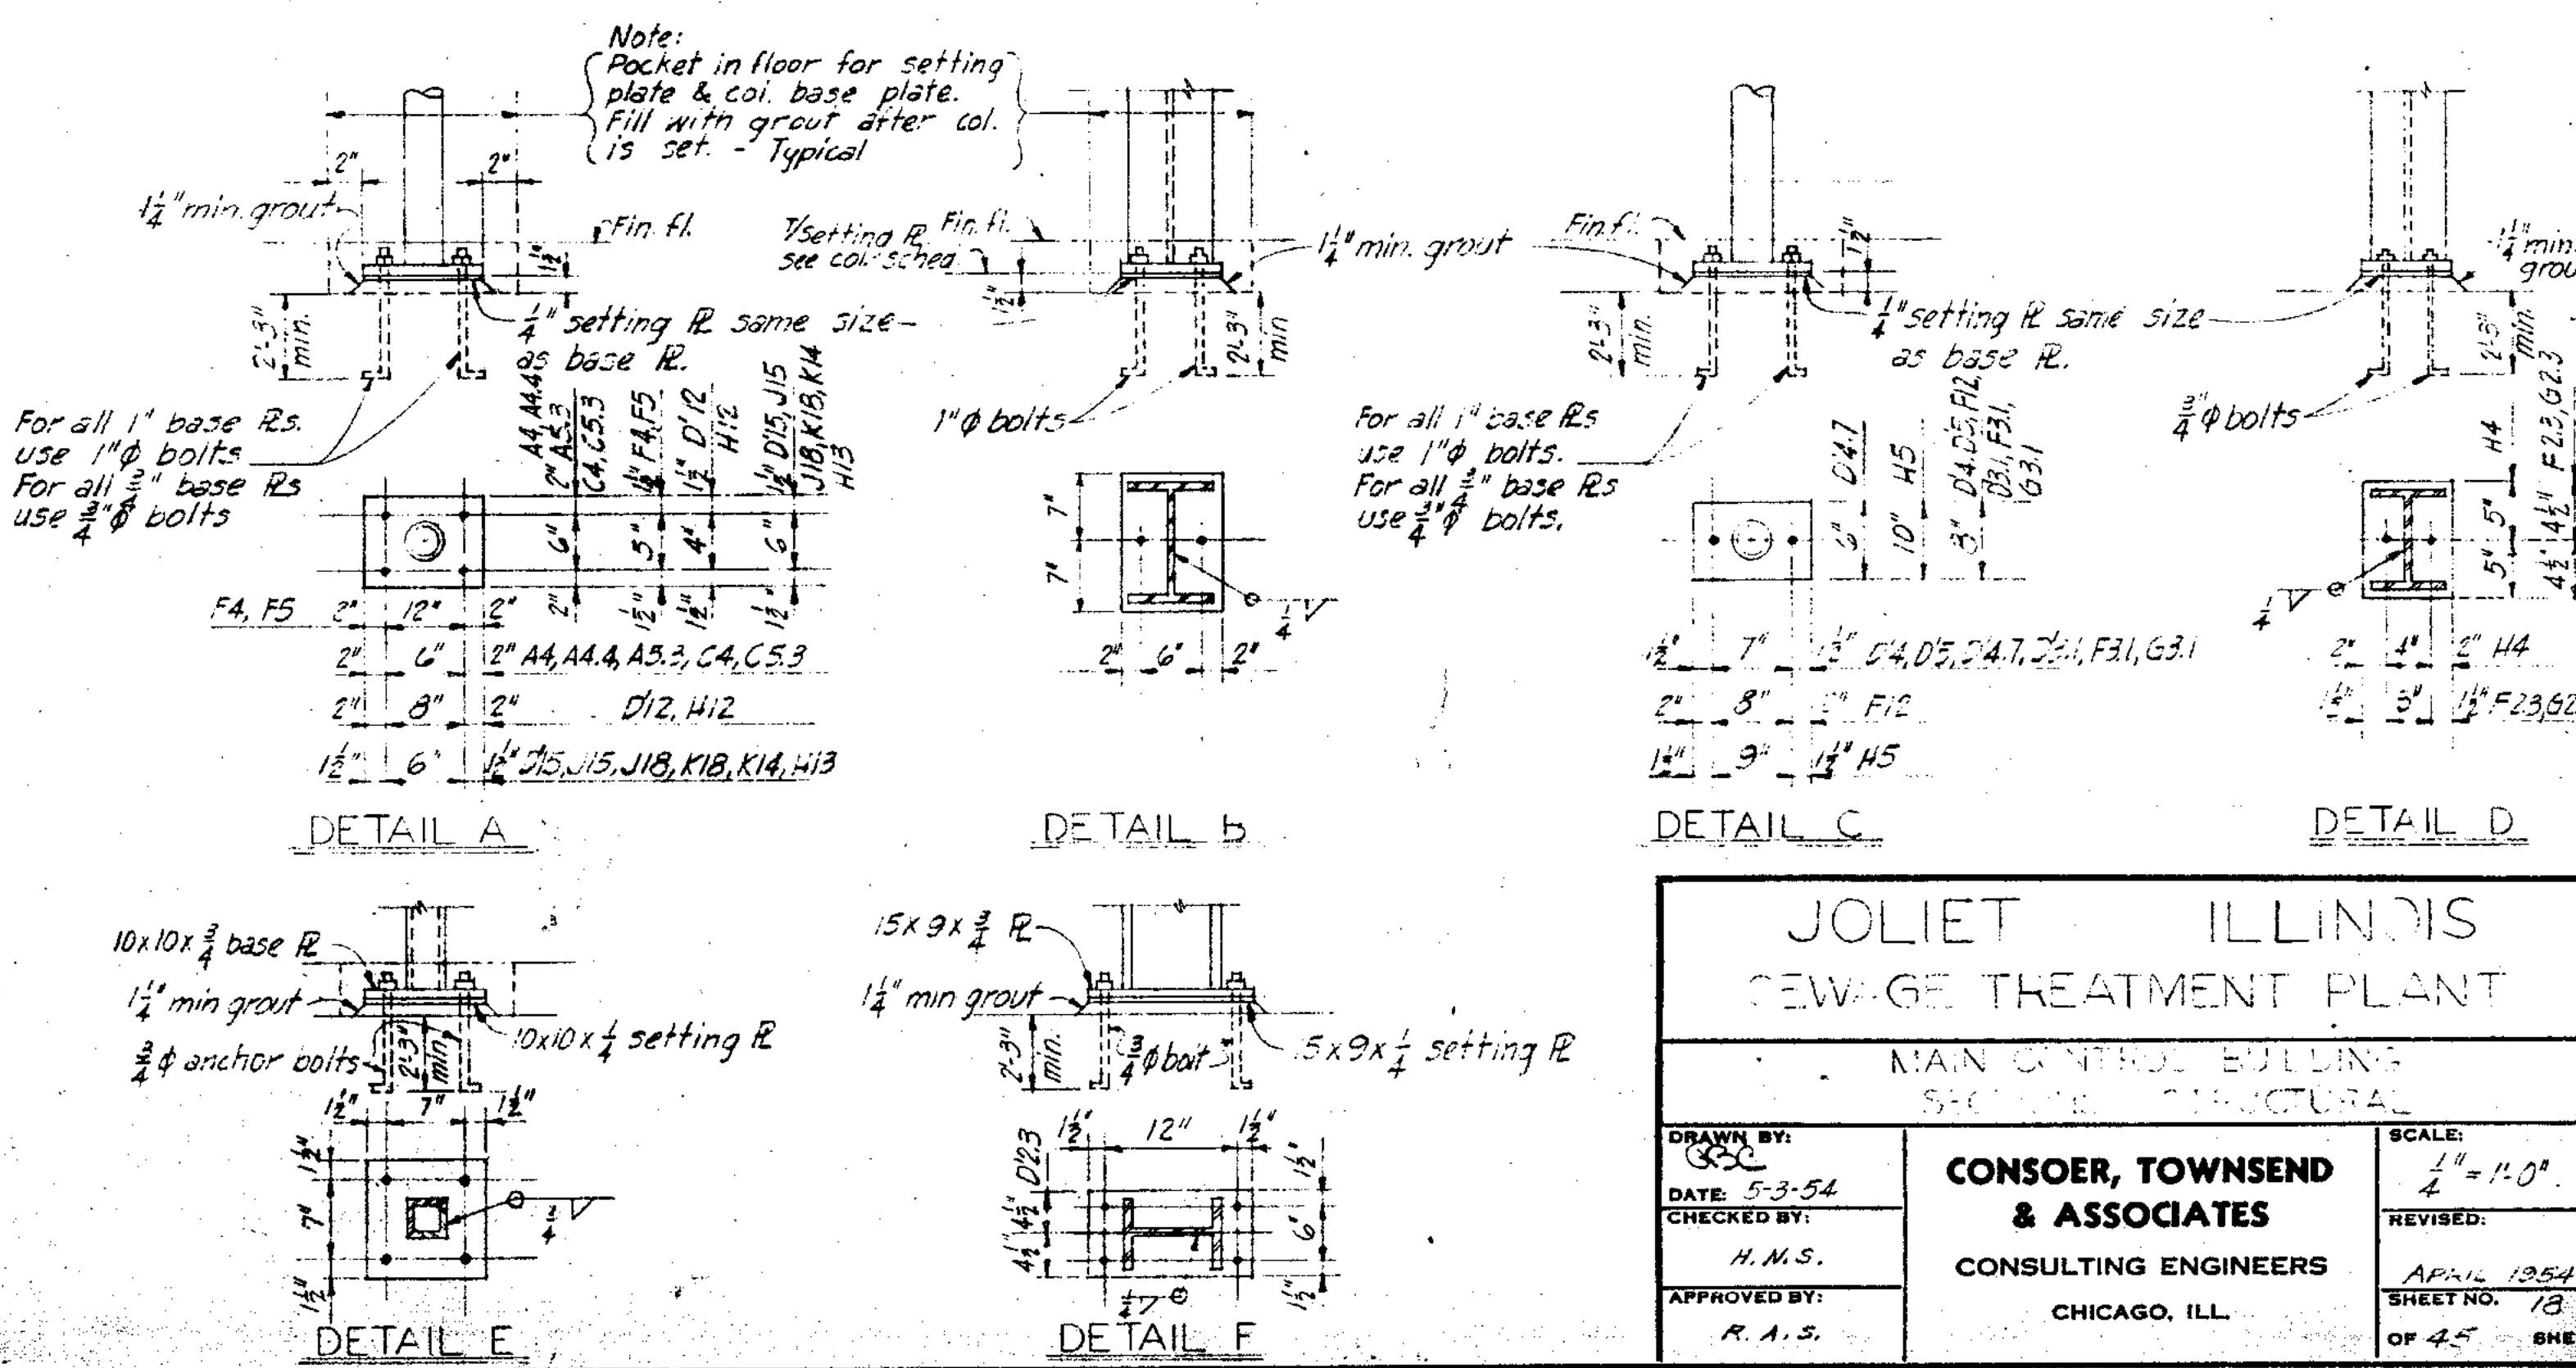 Note:
Pocket in floor for setting
plate & col. base plate.
Fill with grout after col.
is set. - Typical
2" 2"
1 1/4" min. grout
Fin. fl.
1 1/2"
2'-3" min.
1/4" setting PL same size
as base PL.
For all 1" base PLs.
use 1"φ bolts
For all 3/4" base PLs
use 3/4"φ bolts
2" A4, A4.4, A5.3
C4, C5.3
1 1/2" F4, F5
1 1/2" D'12
H12
1 1/2" D'15, J15
J18, K18, K14
H13
6" 5" 4" 6"
2" 1 1/2" 1 1/2" 1 1/2"
F4, F5 2" 12" 2"
2" 6" 2" A4, A4.4, A5.3, C4, C5.3
2" 8" 2" D'12, H12
1 1/2" 6" 1 1/2" D'15, J15, J18, K18, K14, H13
DETAIL A
T/setting PL
see col. sched.
Fin. fl.
1 1/2"
1 1/4" min. grout
2'-3" min
1"φ bolts
7"
7"
1/4
2" 6" 2"
DETAIL B
Fin. fl.
1 1/2"
2'-3" min.
1/4" setting PL same size
as base PL.
For all 1" base PLs
use 1"φ bolts.
For all 3/4" base PLs
use 3/4"φ bolts.
6" D'4.7
10" H5
8" D'4, D'5, F12,
D'3.1, F3.1,
G3.1
1 1/2" 7" 1 1/2" D'4, D'5, D'4.7, D'3.1, F3.1, G3.1
2" 8" 2" F12
1 1/2" 9" 1 1/2" H5
DETAIL C
1 1/4" min.
2'-3" min.
3/4"φ bolts
5" 5" H4
4 1/2" 4 1/2" F2.3, G2.3
1/4
2" 4" 2" H4
1 1/2" 3" 1 1/2" F2.3,
DETAIL D
10x10x3/4 base PL
1 1/4" min grout
3/4 φ anchor bolts
2'-3" min.
10x10x1/4 setting PL
1 1/2" 7" 1 1/2"
1 1/2"
7"
1 1/2"
DETAIL E
15x9x3/4 PL
1 1/4" min grout
2'-3" min.
3/4 φ bolts
15x9x1/4 setting PL
1 1/2" 12" 1 1/2"
4 1/2" 4 1/2" D'2.3
1 1/2"
6"
1 1/2"
1/4
DETAIL F
JOLIET ILLINOIS
SEWAGE TREATMENT PLANT
MAIN CONTROL BUILDING
STRUCTURAL
DRAWN BY:
DATE: 5-3-54
CHECKED BY:
H.N.S.
APPROVED BY:
R.A.S.
CONSOER, TOWNSEND
& ASSOCIATES
CONSULTING ENGINEERS
CHICAGO, ILL.
SCALE:
1/4" = 1'-0"
REVISED:
APRIL 1954
SHEET NO. 18
OF 45